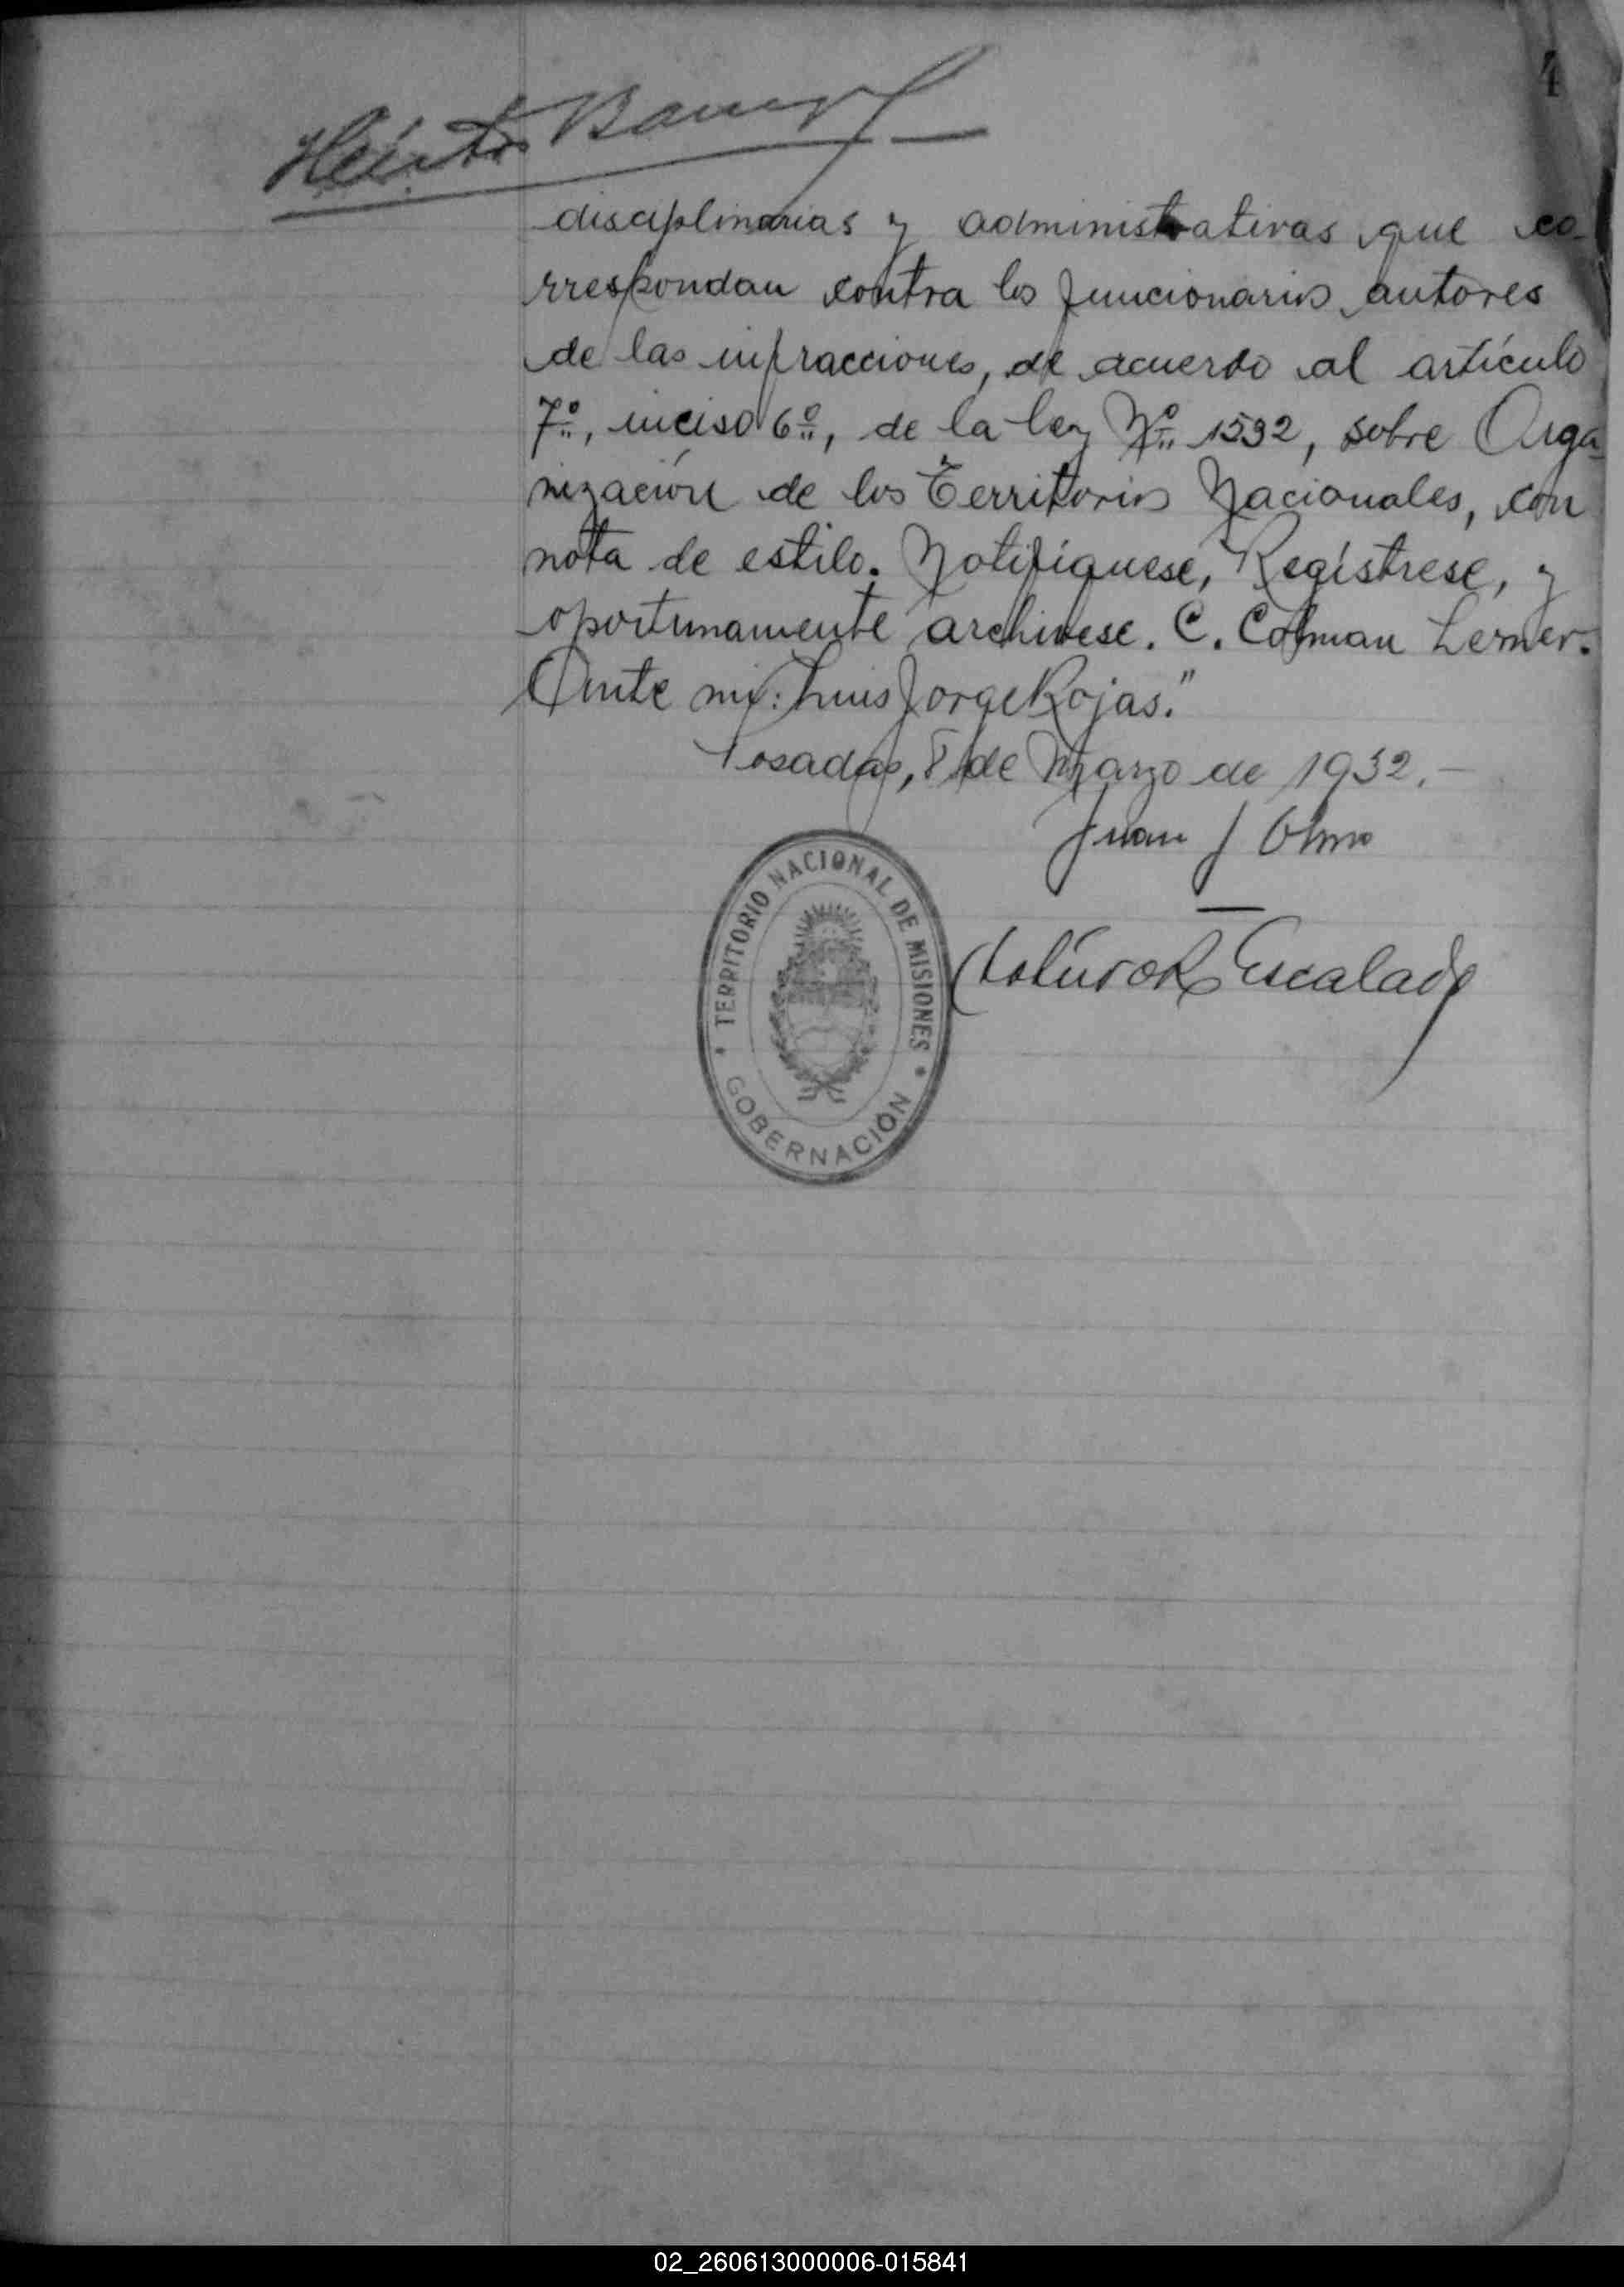 4
Héctor
disciplinarias y administrativas que co-
rrespondan contra los funcionarios autores
de las infracciones, de acuerdo al artículo
7º, inciso 6º, de la ley Nº 1532, sobre Orga-
nización de los Territorios Nacionales, con
nota de estilo. Notifíquese, Regístrese, y
oportunamente archívese. C. Colman Lerner.
Ante mí: Luis Jorge Rojas."
Posadas, 8 de Marzo de 1932.-
Juan J Olmo
TERRITORIO NACIONAL DE MISIONES
GOBERNACIÓN
Escalada
02_260613000006-015841